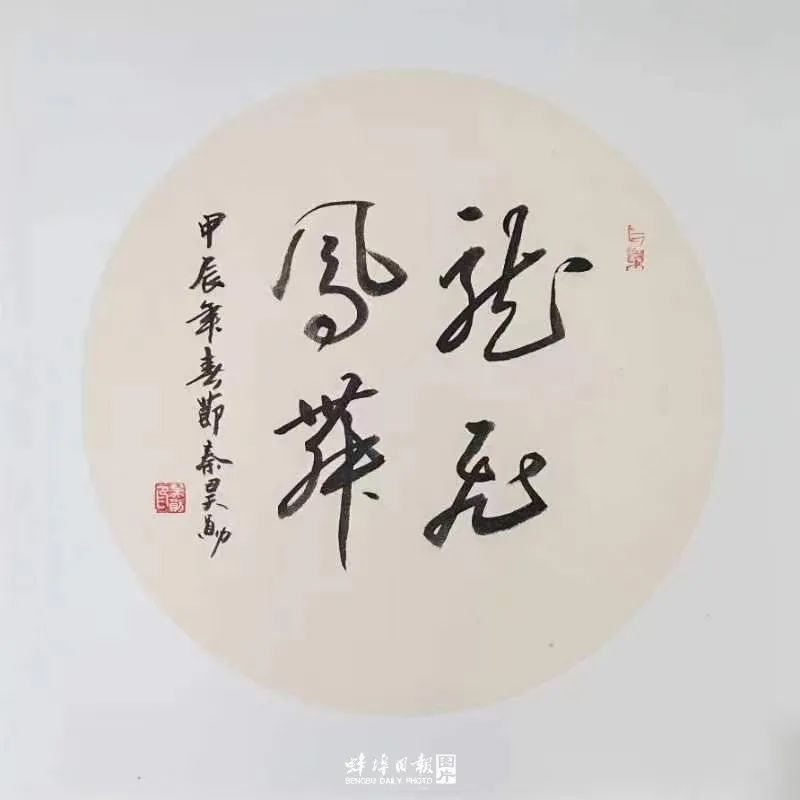 龍飛
鳳舞
甲辰年春節秦昊勛
蚌埠日報 图片
BENGBU DAILY PHOTO